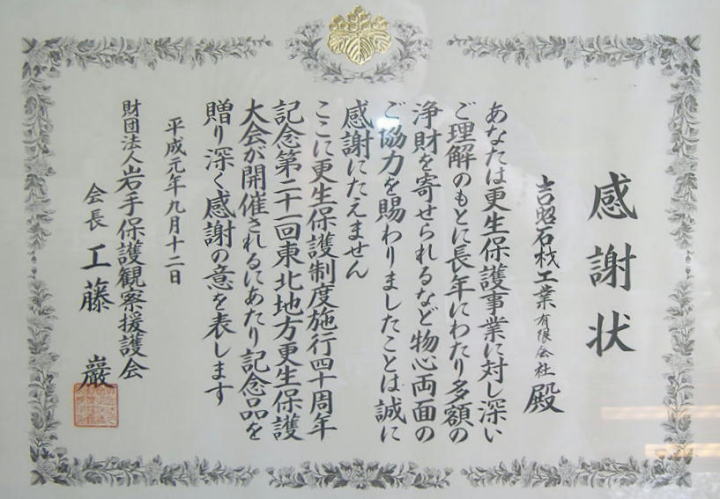 感謝状
吉照石材工業有限会社 殿
あなたは更生保護事業に対し深い
ご理解のもとに長年にわたり多額の
浄財を寄せられるなど物心両面の
ご協力を賜わりましたことは誠に
感謝にたえません
ここに更生保護制度施行四十周年
記念第二十一回東北地方更生保護
大会が開催されるにあたり記念品を
贈り深く感謝の意を表します
平成元年九月十二日
財団法人岩手保護観察援護会
会長 工藤 巖